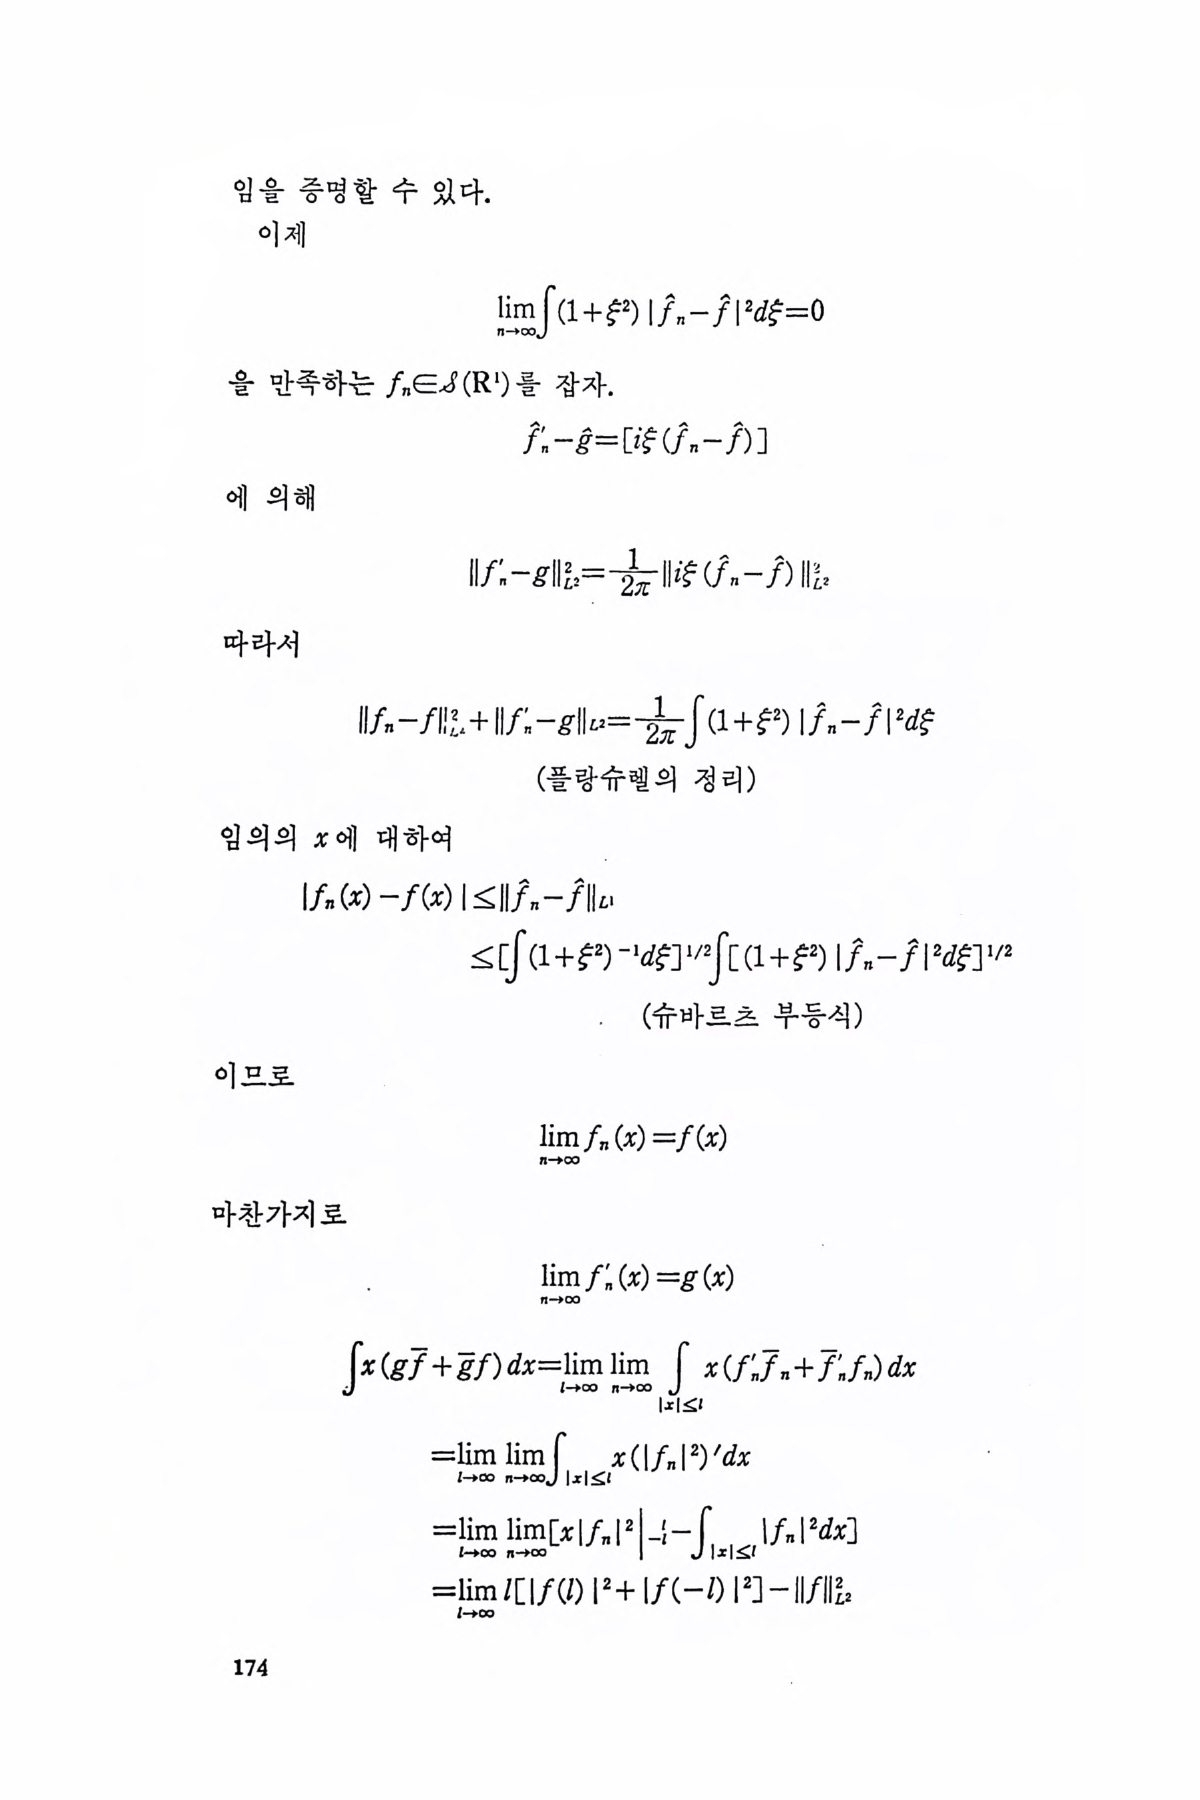 임을 증명할 수 있다.
이제
lim_{n→∞}∫(1+ξ²)|f̂ₙ−f̂|²dξ=0
을 만족하는 fₙ∈𝒮(R¹)를 잡자.
f̂′ₙ−ĝ=[iξ(f̂ₙ−f̂)]
에 의해
‖f′ₙ−g‖²_{L²}=1/2π‖iξ(f̂ₙ−f̂)‖²_{L²}
따라서
‖fₙ−f‖²_{L²}+‖f′ₙ−g‖_{L²}=1/2π∫(1+ξ²)|f̂ₙ−f̂|²dξ
(플랑슈렐의 정리)
임의의 x에 대하여
|fₙ(x)−f(x)|≤‖f̂ₙ−f̂‖_{L¹}
≤[∫(1+ξ²)⁻¹dξ]^{1/2}∫[(1+ξ²)|f̂ₙ−f̂|²dξ]^{1/2}
(슈바르츠 부등식)
이므로
lim_{n→∞}fₙ(x)=f(x)
마찬가지로
lim_{n→∞}f′ₙ(x)=g(x)
∫x(gf̄+ḡf)dx=lim_{l→∞} lim_{n→∞} ∫_{|x|≤l} x(f′ₙf̄ₙ+f̄′ₙfₙ)dx
=lim_{l→∞} lim_{n→∞}∫_{|x|≤l} x(|fₙ|²)′dx
=lim_{l→∞} lim_{n→∞}[x|fₙ|²|_{-l}^{l}−∫_{|x|≤l}|fₙ|²dx]
=lim_{l→∞} l[|f(l)|²+|f(−l)|²]−‖f‖²_{L²}
174